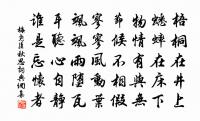 梧桐在井上
蟋蟀在床下
物情有與無
節候不相假
寥寥風動葉
颯颯雨墮瓦
耳聽心自靜
誰是忘懷者
梅堯臣秋思詞典網集